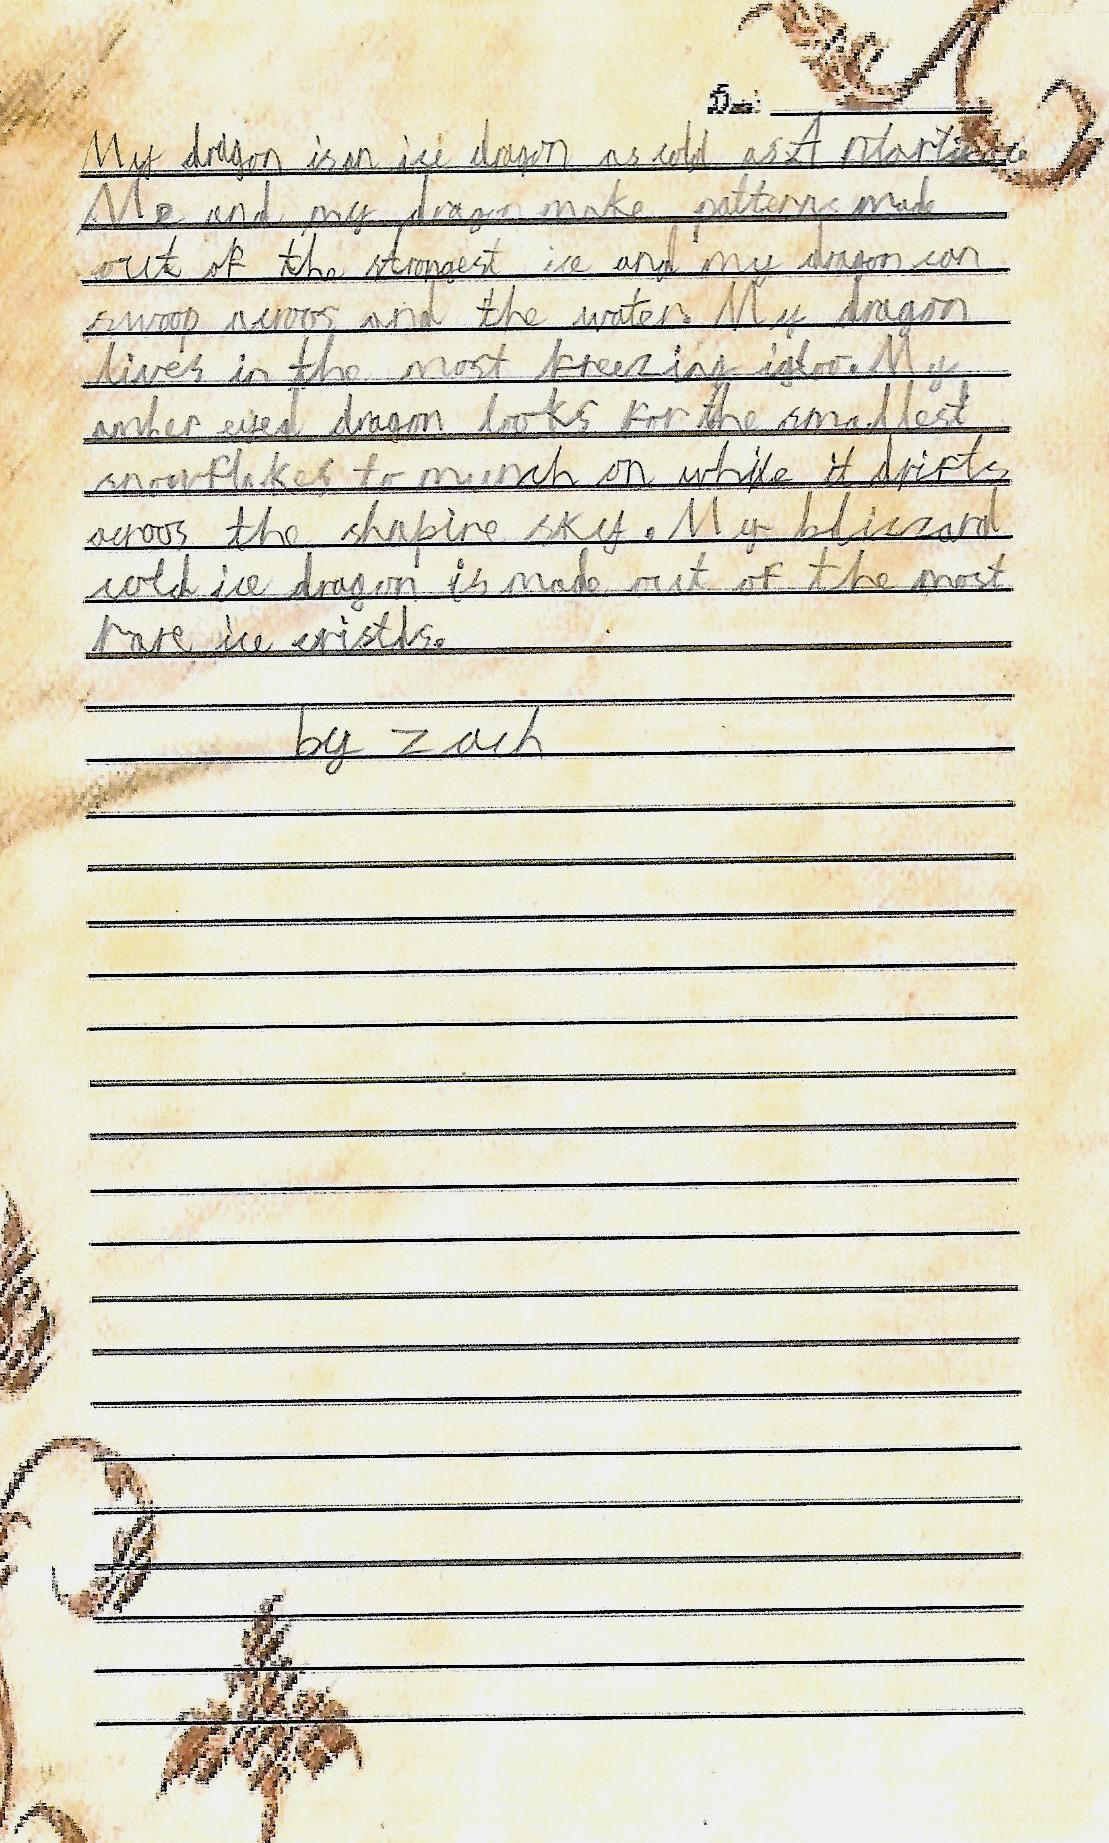 My dragon is an ice dragon as cold as
Me and my dragon make patterns made
out of the strongest ice and my dragon can
swoop acroos and the water. My dragon
lives in the most freezing igloo. My
amber eyed dragon looks for the smallest
snowflakes to munch on while it drifts
acroos the shapire sky. My blizzard
cold ice dragon is made out of the most
rare ice cristls.
by zach